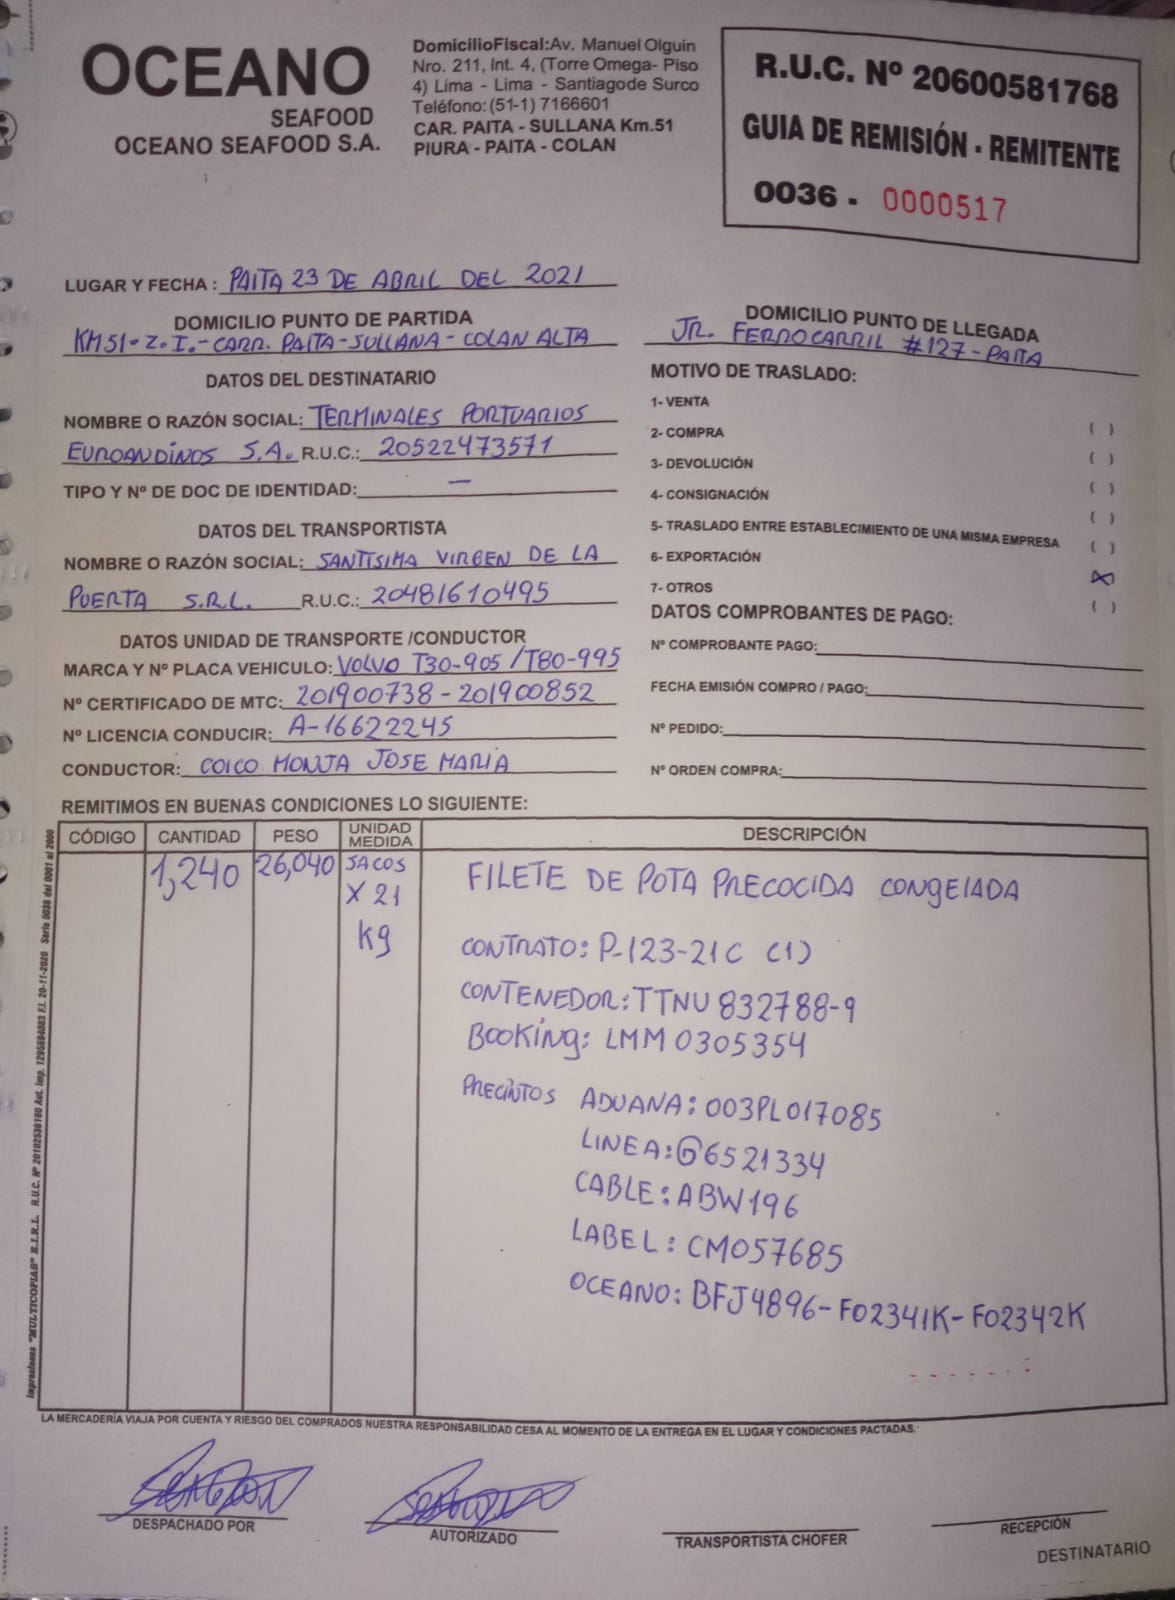 OCEANO
SEAFOOD
OCEANO SEAFOOD S.A.
DomicilioFiscal:Av. Manuel Olguin
Nro. 211, Int. 4, (Torre Omega- Piso
4) Lima - Lima - Santiagode Surco
Teléfono: (51-1) 7166601
CAR. PAITA - SULLANA Km.51
PIURA - PAITA - COLAN
R.U.C. Nº 20600581768
GUIA DE REMISIÓN - REMITENTE
0036 - 0000517
LUGAR Y FECHA : PAITA 23 DE ABRIL DEL 2021
DOMICILIO PUNTO DE PARTIDA
KM51-Z.I.-CARR. PAITA-SULLANA-COLAN ALTA
DOMICILIO PUNTO DE LLEGADA
JR. FERROCARRIL #127-PAITA
DATOS DEL DESTINATARIO
NOMBRE O RAZÓN SOCIAL: TERMINALES PORTUARIOS
EUROANDINOS S.A. R.U.C.: 20522473571
TIPO Y Nº DE DOC DE IDENTIDAD: —
DATOS DEL TRANSPORTISTA
NOMBRE O RAZÓN SOCIAL: SANTISIMA VIRGEN DE LA
PUERTA S.R.L. R.U.C.: 20481610495
DATOS UNIDAD DE TRANSPORTE /CONDUCTOR
MARCA Y Nº PLACA VEHICULO: VOLVO T30-905 /T80-995
Nº CERTIFICADO DE MTC: 201900738 - 201900852
Nº LICENCIA CONDUCIR: A-16622245
CONDUCTOR: COICO MONJA JOSE MARIA
MOTIVO DE TRASLADO:
1- VENTA ( )
2- COMPRA ( )
3- DEVOLUCIÓN ( )
4- CONSIGNACIÓN ( )
5- TRASLADO ENTRE ESTABLECIMIENTO DE UNA MISMA EMPRESA ( )
6- EXPORTACIÓN X
7- OTROS ( )
DATOS COMPROBANTES DE PAGO:
Nº COMPROBANTE PAGO:
FECHA EMISIÓN COMPRO / PAGO:
Nº PEDIDO:
Nº ORDEN COMPRA:
REMITIMOS EN BUENAS CONDICIONES LO SIGUIENTE:
CÓDIGO CANTIDAD PESO UNIDAD MEDIDA DESCRIPCIÓN
1,240 26,040 SACOS
X 21
kg
FILETE DE POTA PRECOCIDA CONGELADA
CONTRATO: P-123-21C (1)
CONTENEDOR: TTNU 832788-9
BOOKING: LMM0305354
PRECINTOS ADUANA: 003PL017085
LINEA: G6521334
CABLE: ABW196
LABEL: CM057685
OCEANO: BFJ4896-F02341K-F02342K
Impresiones "MULTICOPIAS" E.I.R.L. R.U.C. Nº 20102536160 Aut. Imp. 1295694083 F.I. 20-11-2020 Serie 0036 del 0001 al 2000
LA MERCADERÍA VIAJA POR CUENTA Y RIESGO DEL COMPRADOS NUESTRA RESPONSABILIDAD CESA AL MOMENTO DE LA ENTREGA EN EL LUGAR Y CONDICIONES PACTADAS.
DESPACHADO POR
AUTORIZADO
TRANSPORTISTA CHOFER
RECEPCIÓN
DESTINATARIO